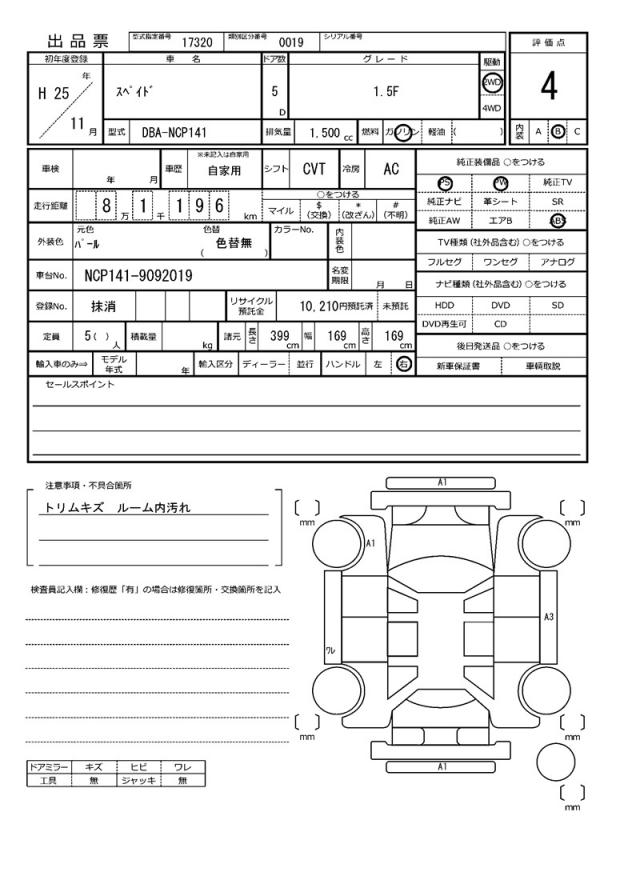 出品票 型式指定番号 17320 類別区分番号 0019 シリアル番号
評価点
4
内装 A B C
初年度登録 車名 ドア数 グレード 駆動
H 25 年 ｽﾍﾟｲﾄﾞ 5 D 1.5F 2WD
4WD
11 月 型式 DBA-NCP141 排気量 1.500 cc 燃料 ガソリン 軽油 ( )
車検 年 月 車歴 ※未記入は自家用 自家用 シフト CVT 冷房 AC
走行距離 8 万 1 千 1 9 6 km
○をつける
マイル $(交換) *(改ざん) #(不明)
外装色 元色 ﾊﾟｰﾙ 色替 色替無 ( ) カラーNo. 内装色
車台No. NCP141-9092019 名変期限 月 日
登録No. 抹消 リサイクル預託金 10,210円預託済 未預託
定員 5( ) 人 積載量 kg 諸元 長さ 399 cm 幅 169 cm 高さ 169 cm
輸入車のみ⇒ モデル年式 年 輸入区分 ディーラー 並行 ハンドル 左 右
純正装備品 ○をつける
PS PW 純正TV
純正ナビ 革シート SR
純正AW エアB ABS
TV種類(社外品含む)○をつける
フルセグ ワンセグ アナログ
ナビ種類(社外品含む)○をつける
HDD DVD SD
DVD再生可 CD
後日発送品 ○をつける
新車保証書 車輌取説
セールスポイント
注意事項・不具合箇所
トリムキズ ルーム内汚れ
検査員記入欄：修復歴「有」の場合は修復箇所・交換箇所を記入
ドアミラー キズ ヒビ ワレ
工具 無 ジャッキ 無
A1
mm
mm
A1
A3
ﾜﾚ
mm
mm
A1
mm